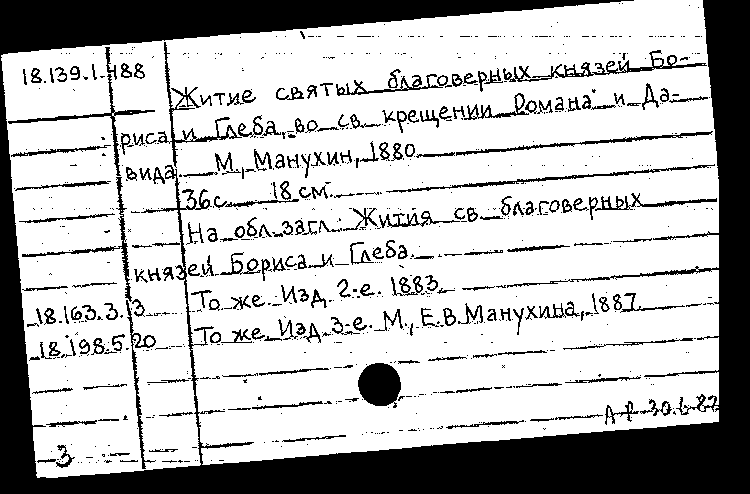 18.139.1.488
Житие святых благоверных князей Бо-
риса и Глеба, во св. крещении Романа и Да-
вида. М., Манухин, 1880.
36с. 18 см.
На обл. загл.: Жития св. благоверных
князей Бориса и Глеба.
18.163.3.13 То же. Изд. 2-е. 1883.
18.198.5.20 То же. Изд. 3-е. М., Е.В. Манухина, 1887.
30.6.82
3